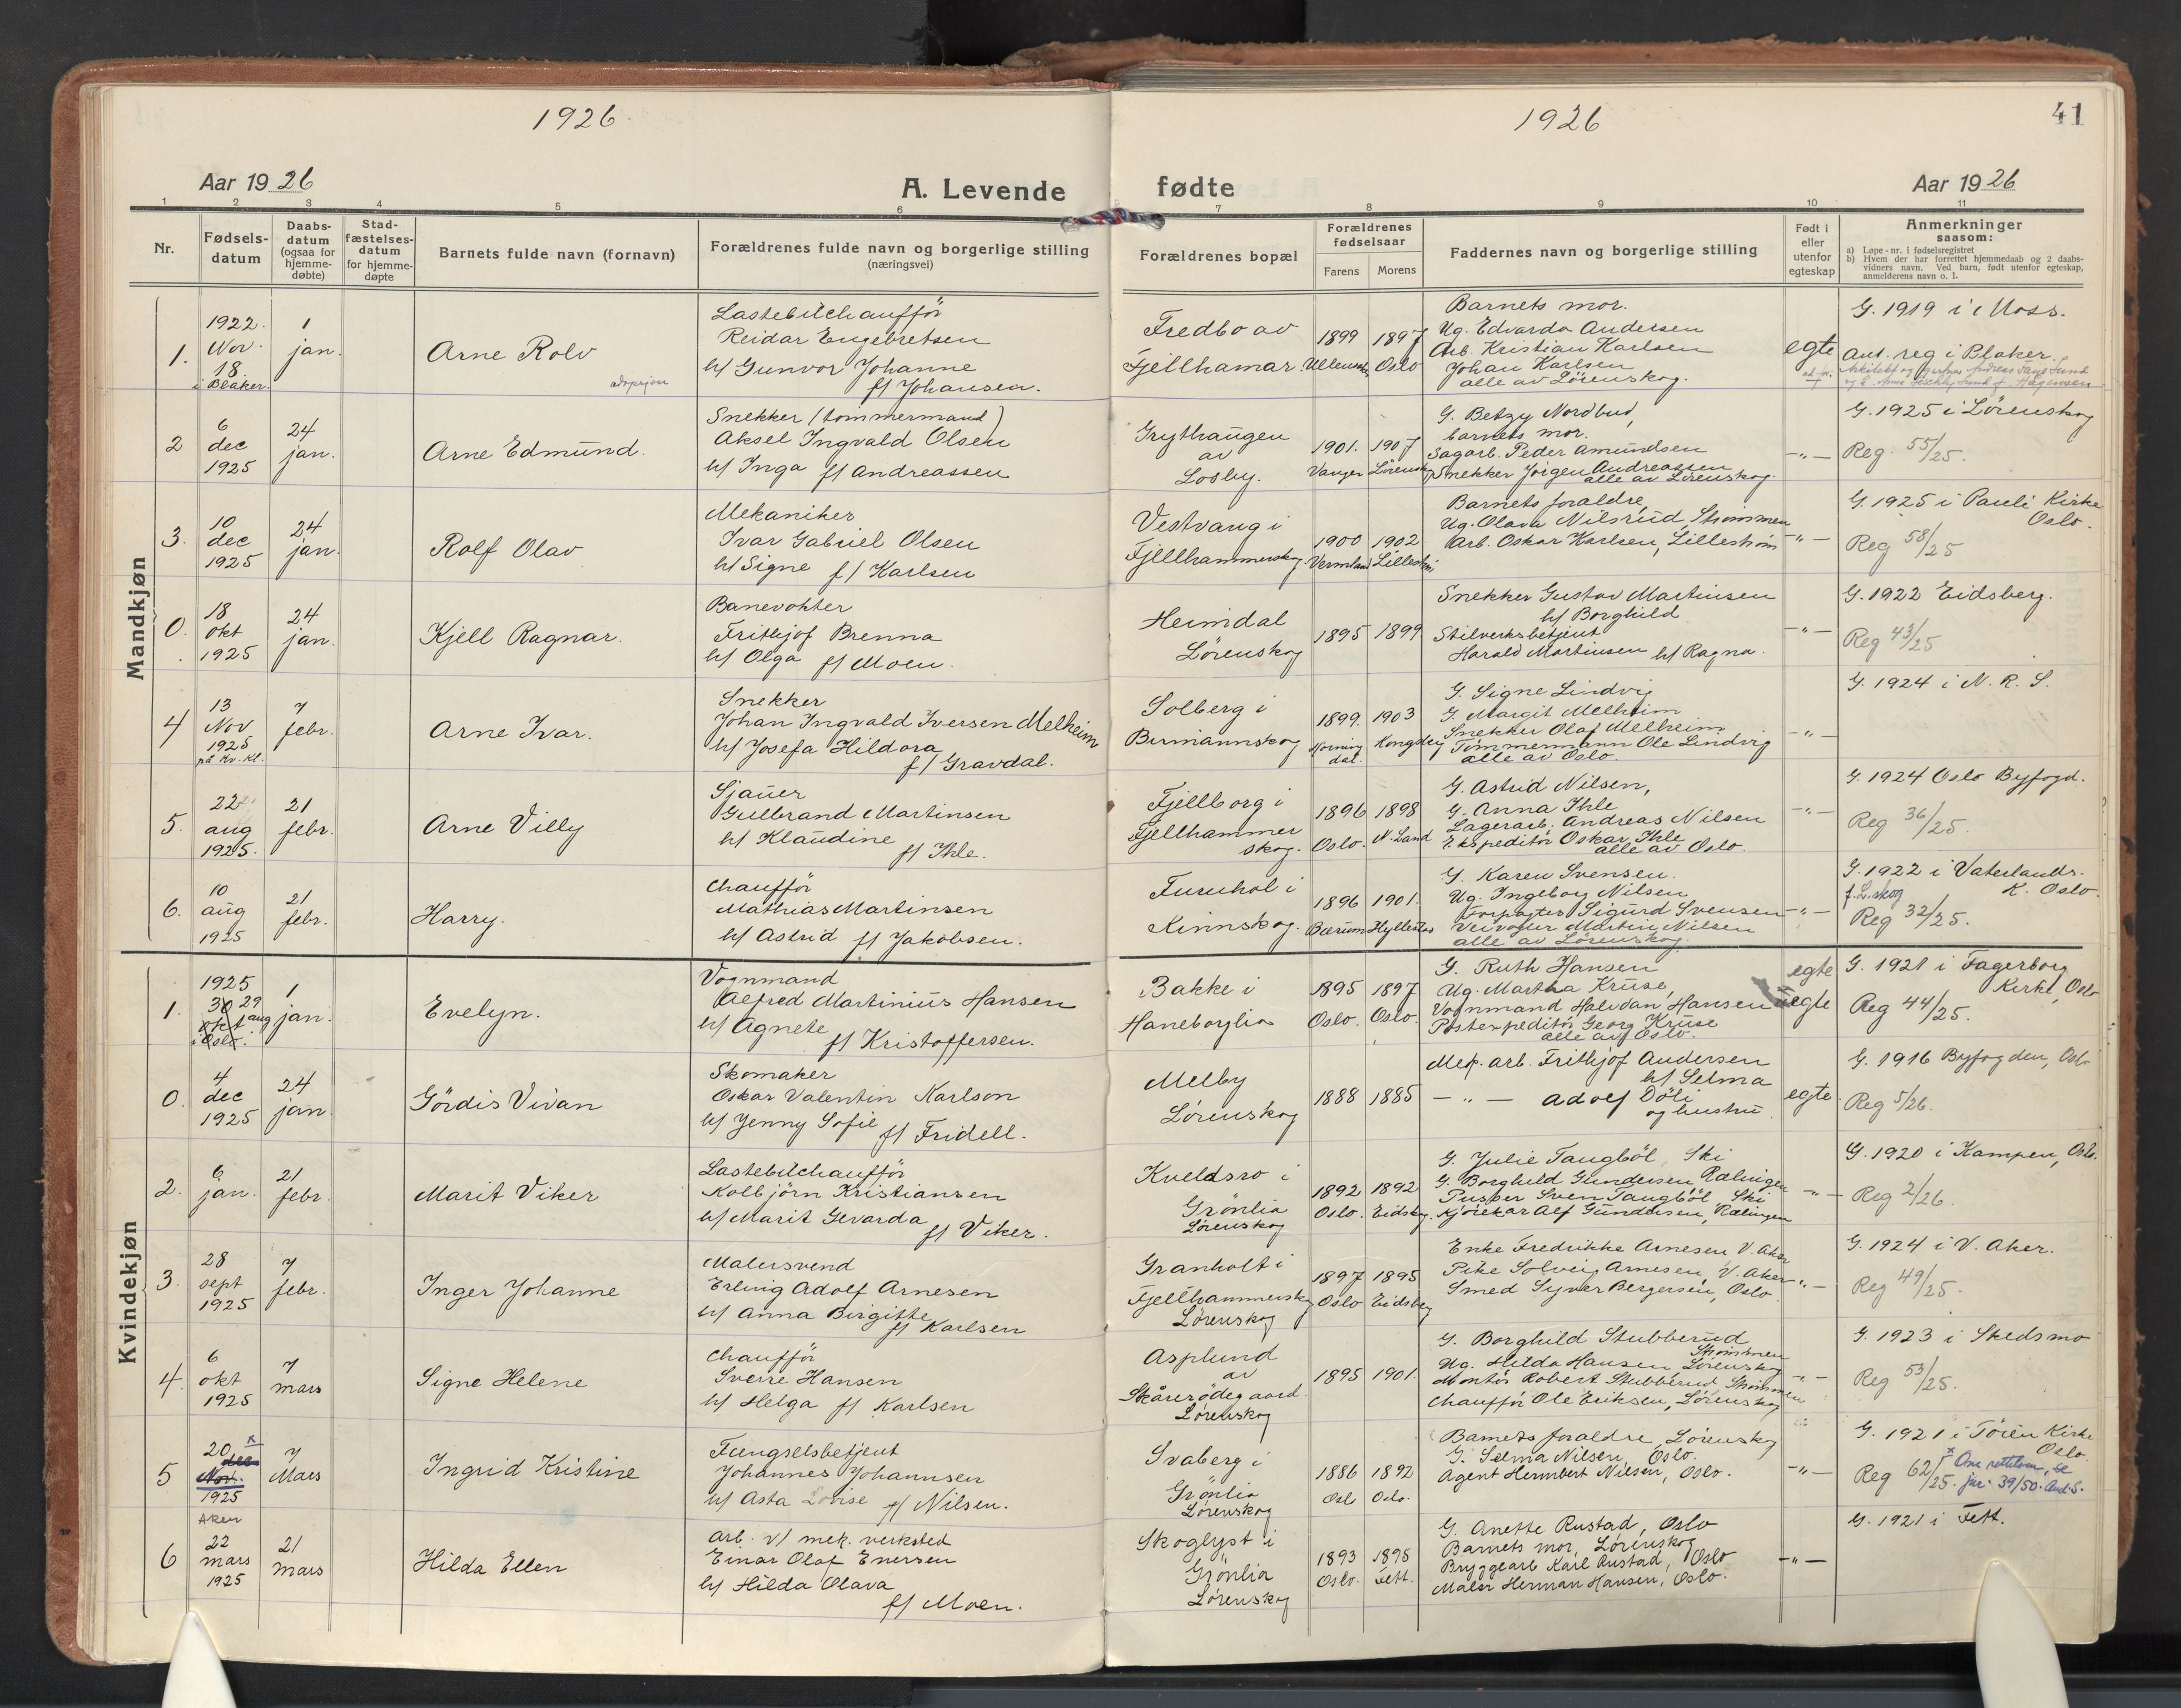 1926.
1926
41
Aar 1926
A. Levende
fødte
Aar 1926
1 2 3 4 5 6 7 8 9 10 11
Nr.
Fødsels-
datum
Daabs-
datum
(ogsaa for
hjemme-
døbte)
Stad-
fæstelses-
datum
for hjemme-
døpte
Barnets fulde navn (fornavn)
Forældrenes fulde navn og borgerlige stilling
(næringsvei)
Forældrenes bopæl
Forældrenes
fødselsaar
Farens
Morens
Faddernes navn og borgerlige stilling
Født i
eller
utenfor
egteskap
Anmerkninger
saasom:
a) Løpe-nr. i fødselsregistret
b) Hvem der har forrettet hjemmedaab og 2 daabs-
vidners navn. Ved barn, født utenfor egteskap,
anmelderens navn o. l.
Mandkjøn
1.
1922.
Nov.
18
i Blaker.
1
jan.
Arne Rolv
adopsjon
Lastebilchaufför
Reidar Engebretsen
h/ Gunvor Johanne
f/ Johansen.
Fredbo av
Fjellhamar
1899 1897
Oslo
Barnets mor.
Ug. Edvarda Andersen
Arb. Kristian Karlsen
Johan Karlsen
alle av Lørenskog.
egte
G. 1919 i Moss.
Ant. reg i Blaker.
2
6
dec
1925
24
jan.
Arne Edmund.
Snekker (tømmermand)
Aksel Ingvald Olsen
h/ Inga f/ Andreassen
Grythaugen
av
Losby.
1901. 1907
Vanger Lørenskog
G. Betzy Nordbud,
barnets mor.
Sagarb. Peder Amundsen
Snekker Jørgen Andreassen
alle av Lørenskog.
-"-
G. 1925 i Lörenskog
Reg. 55/25.
3.
10
dec
1925
24
jan.
Rolf Olav
Mekaniker
Ivar Gabriel Olsen
h/ Signe f/ Karlsen
Vestvang i
Fjellhammerskog
1900 1902
Vermland Lillestrøm
Barnets foraldre,
Ug. Olava Nilsrud, Strømmen
Arb. Oskar Karlsen, Lillestrøm
-"-
G. 1925 i Pauli Kirke
Oslo.
Reg 58/25
0.
18
okt
1925
24
jan.
Kjell Ragnar.
Banevokter
Frithjof Brenna
h/ Olga f/ Moen.
Heimdal
Lörenskog
1895 1899
Snekker Gustav Martinsen
h/ Borghild
Stilverksbetjent
Harald Martinsen h/ Ragna.
-"-
G. 1922 Eidsberg.
Reg 43/25
4
13
Nov
1925
på Kv. Kl.
7
febr.
Arne Ivar.
Snekker
Johan Ingvald Iversen Melheim
h/ Josefa Hildora
f/ Gravdal.
Solberg i
Bermannskog
1899. 1903
Horning
dal. Kongsberg
G. Signe Lindvig
G. Margit Melheim
Snekker Olaf Melheim
Tømmermann Ole Lindvig
alle av Oslo.
-"-
G. 1924 i N. R. S.
5.
22
aug
1925.
21
febr.
Arne Villy
Sjauer
Gulbrand Martinsen
h/ Klaudine
f/ Ihle.
Fjellborg i
Fjellhammer
skog.
1896 1898
Oslo. N. Land
G. Astrid Nilsen,
G. Anna Ihle
Lagerarb. Andreas Nilsen
Ekspeditör Oskar Ihle
alle av Oslo.
-"-
G. 1924 Oslo Byfogd.
Reg 36/25.
6.
10
aug
1925
21
febr.
Harry.
Chauffør
Mathias Martinsen
h/ Astrid f/ Jakobsen.
Furuhol i
Kinnskog.
1896 1901.
Bærum Hyllestad
G. Karen Svensen.
Ug. Ingeborg Nilsen
Forpagter Sigurd Svensen
Veivokter Martin Nilsen
alle av Lørenskog.
-"-
G. 1922 i Vaterlands.
f. L.skog K. Oslo.
Reg 32/25.
Kvindekjøn
1.
1925
30 29
okt aug
i Oslo.
1
jan.
Evelyn.
Vognmand
Alfred Martinius Hansen
h/ Agnete
f/ Kristoffersen.
Bakke i
Haneborglia
1895 1897
Oslo. Oslo.
G. Ruth Hansen
Ug. Martha Kruse,
Vognmand Halvdan Hansen
Postexpeditör Georg Kruse
alle av Oslo.
egte
uegte
G. 1921 i Fagerborg
Kirke, Oslo
Reg 44/25.
0.
4
dec
1925
24
jan.
Gördis Vivan
Skomaker
Oskar Valentin Karlson
h/ Jenny Sofie
f/ Fridell.
Melby
Lørenskog
1888 1885
Mek. arb. Frithjof Andersen
h/ Selma
-"- Adolf Döli
og hustru
egte.
G. 1916 Byfogden, Oslo
Reg 5/26.
2.
6
jan.
21
febr.
Marit Viker
Lastebilchauffør
Kolbjörn Kristiansen
h/ Marit Gevarda
f/ Viker.
Kveldsro i
Grönlia
Lørenskog
1892 1892
Oslo. Eidsbg.
G. Julie Taugböl, Ski
G. Borghild Gundersen Rælingen
Pusser Sven Taugböl, Ski
Kjörekar Alf Gundersen, Rælingen
-"-
G. 1920 i Kampen, Oslo.
Reg 2/26.
3.
28
sept
1925
7
febr.
Inger Johanne
Malersvend
Erling Adolf Arnesen
h/ Anna Birgitte
f/ Karlsen
Granholt i
Fjellhammerskog
Lørenskog
1897 1895
Oslo Eidsberg
Enke Fredrikke Arnesen V. Aker
Pike Solveig Arnesen, V. Aker
Smed Syver Bergersen, Oslo
-"-
G. 1924 i V. Aker.
Reg 49/25.
4.
6
okt
1925
7
mars
Signe Helene
Chauffør
Sverre Hansen
h/ Helga f/ Karlsen
Asplund
av
Skårerødegaard
Lørenskog
1895 1901.
G. Borghild Stubberud
Strømmen
Ug. Hilda Hansen Lørenskog
Montör Robert Stubberud Strømmen
Chauffør Ole Eriksen, Lørenskog
-"-
G. 1923 i Skedsmo
Reg 53/25.
5
20 x
dec
Nov.
1925
Aker
7
Mars
Ingrid Kristine
Fængselsbetjent
Johannes Johannsen
h/ Asta Lovise f/ Nilsen.
Svaberg i
Grönlia
Lørenskog
1886 1892
Osl Oslo.
Barnets foraldre, Lörenskog
G. Selma Nilsen, Oslo.
Agent Hermbert Nilsen, Oslo.
-"-
G. 1921 i Töien Kirke
Oslo.
Reg 62/25.
x Om rettelsen, se
jnr. 39/50. And. S.
6
22
mars
1925
21
mars
Hilda Ellen
Arb. v/ mek. verksted
Einar Olaf Enersen
h/ Hilda Olava
f/ Moen.
Skoglyst i
Grönlia
Lörenskog
1893 1898
Oslo. Fett.
G. Anette Rustad, Oslo
Barnets mor, Lørenskog
Bryggearb Karl Rustad, Oslo
Maler Herman Hansen, Oslo.
-"-
G. 1921 i Fett.